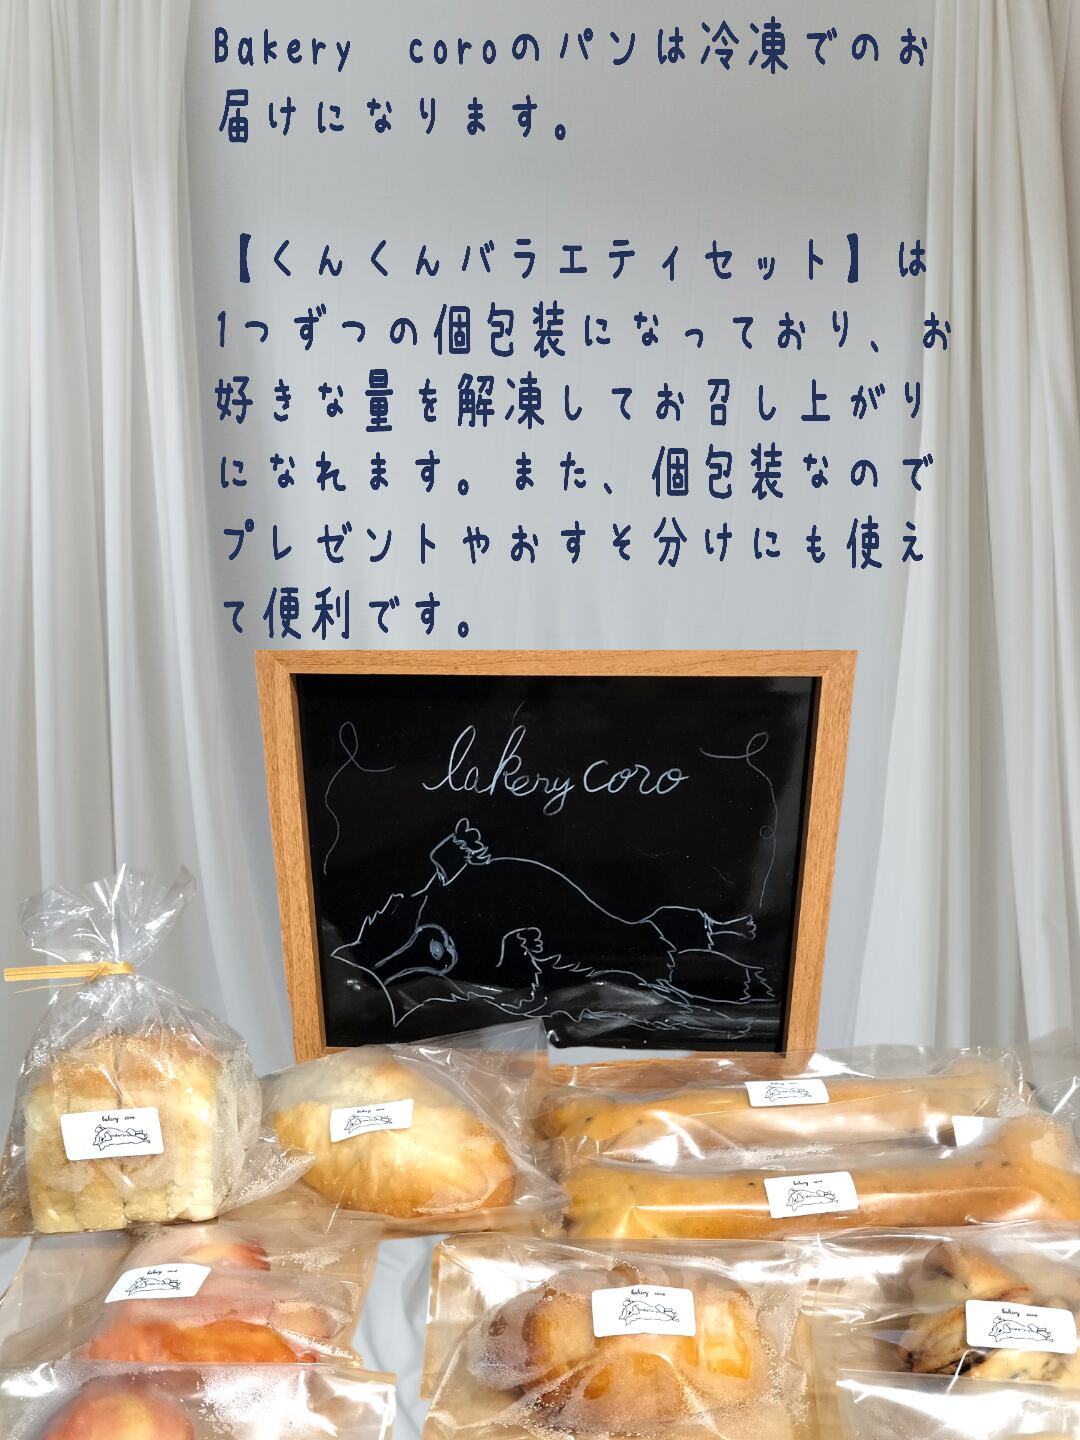 Bakery coroのパンは冷凍でのお
届けになります。
【くんくんバラエティセット】は
1つずつの個包装になっており、お
好きな量を解凍してお召し上がり
になれます。また、個包装なので
プレゼントやおすそ分けにも使え
て便利です。
bakery coro
bakery coro
bakery coro
bakery coro
bakery coro
bakery coro
bakery coro
bakery coro